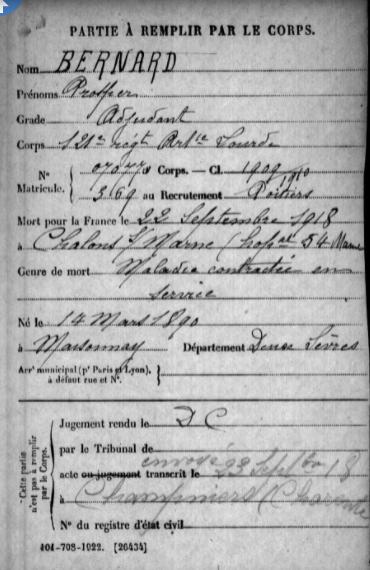 PARTIE À REMPLIR PAR LE CORPS.
Nom BERNARD
Prénoms Prosper
Grade Adjudant
Corps 121e régt Artie Lourde
N° Matricule. { 07077 Corps. — Cl. 1909 1910
369 au Recrutement Poitiers
Mort pour la France le 22 Septembre 1918
à Chalons s/ Marne (hopal 54 Marne
Genre de mort Maladie contractée en
service
Né le 14 Mars 1890
à Maisonnay Département Deux Sèvres
Arrt municipal (pr Paris et Lyon), à défaut rue et N°. }
Cette partie n'est pas à remplir par le Corps.
Jugement rendu le DC
par le Tribunal de
acte ou jugement transcrit le envoyé 23 Septbre 18
à Champniers (Charente
N° du registre d'état civil
101-708-1922. [26434]